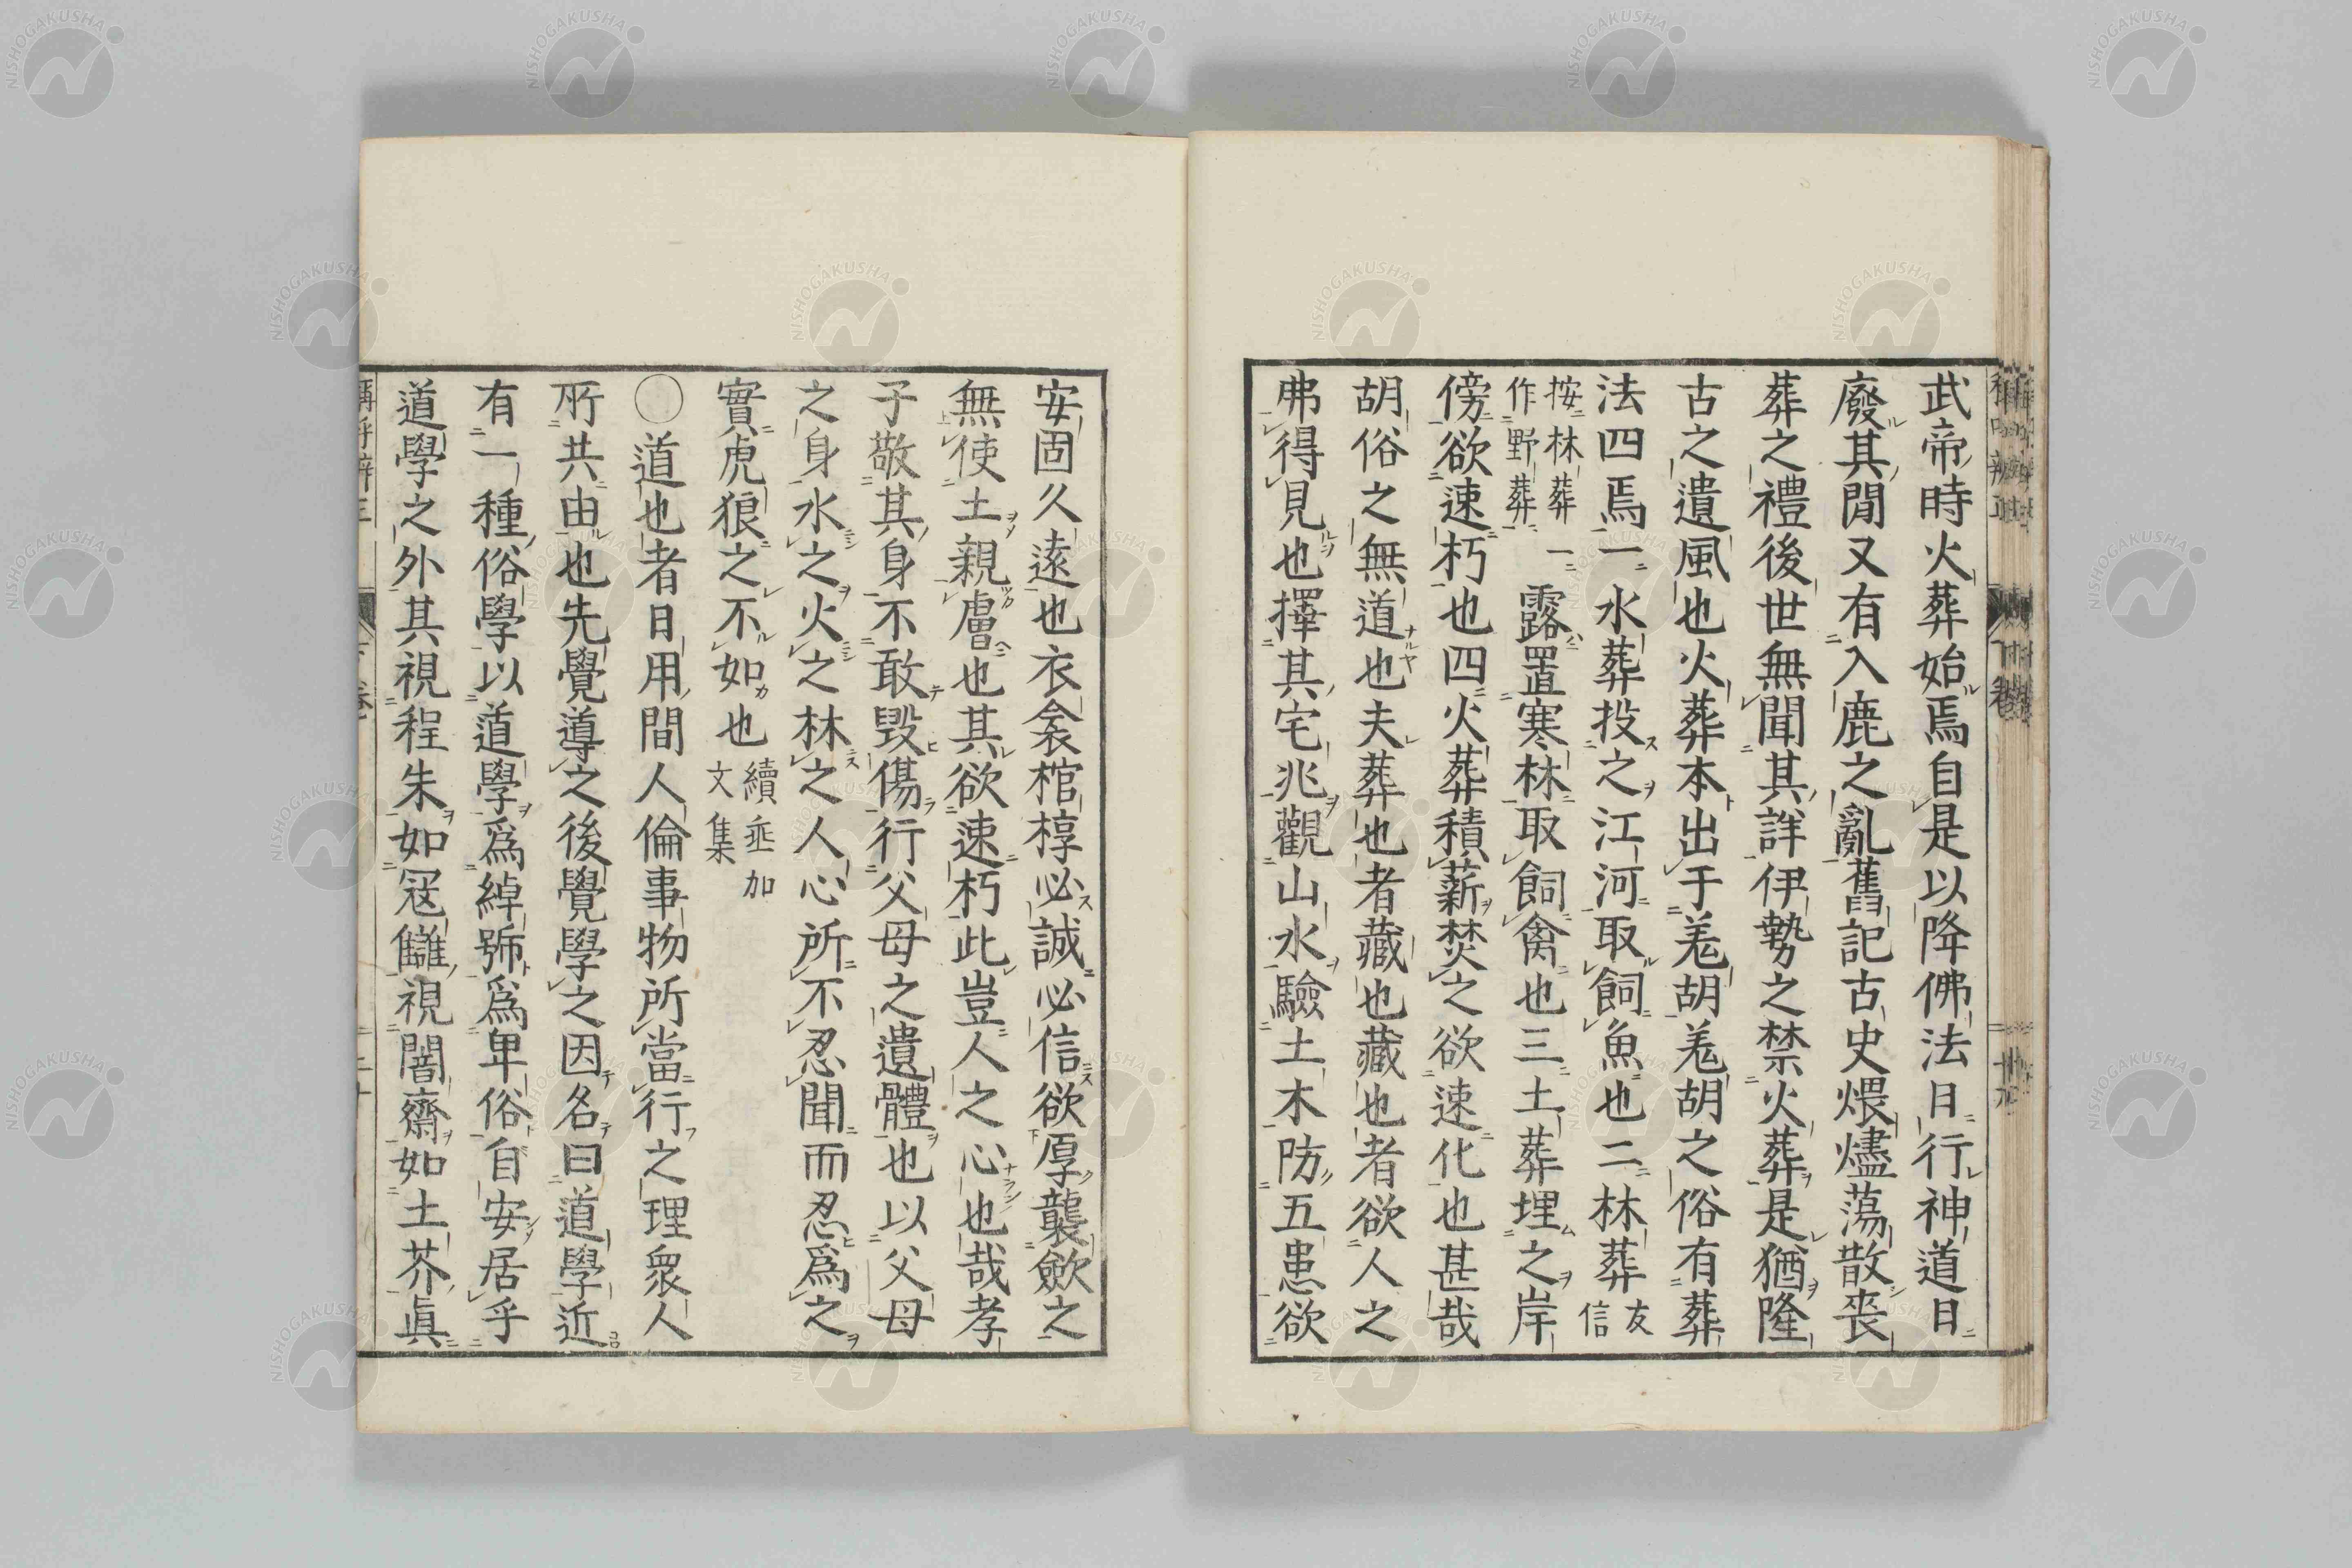 武帝時火葬始焉自是以降佛法日行神道日
廢其閒又有入鹿之亂舊記古史煨燼蕩散喪
葬之禮後世無聞其詳伊勢之禁火葬是猶隆
古之遺風也火葬本出于羗胡羗胡之俗有葬
法四焉一水葬投之江河取飼魚也二林葬友信
按林葬一作野葬露置寒林取飼禽也三土葬埋之岸
傍欲速朽也四火葬積薪焚之欲速化也甚哉
胡俗之無道也夫葬也者藏也藏也者欲人之
弗得見也擇其宅兆觀山水驗土木防五患欲
安固久遠也衣衾棺椁必誠必信欲厚襲斂之
無使土親膚也其欲速朽此豈人之心也哉孝
子敬其身不敢毀傷行父母之遺體也以父母
之身水之火之林之人心所不忍聞而忍爲之
實虎狼之不如也續垂加文集
○道也者日用間人倫事物所當行之理衆人
所共由也先覺導之後覺學之因名曰道學近
有一種俗學以道學爲綽號爲卑俗自安居乎
道學之外其視程朱如冦讎視闇齋如土芥眞
NISHOGAKUSHA